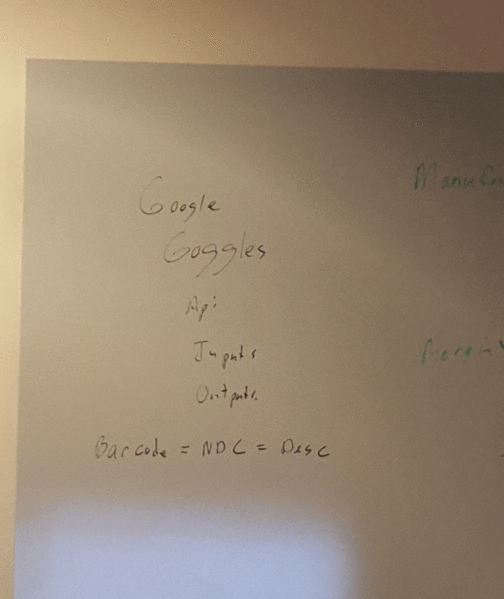 Google
Goggles
Api
Inputs
Outputs.
Barcode = NDC = Desc